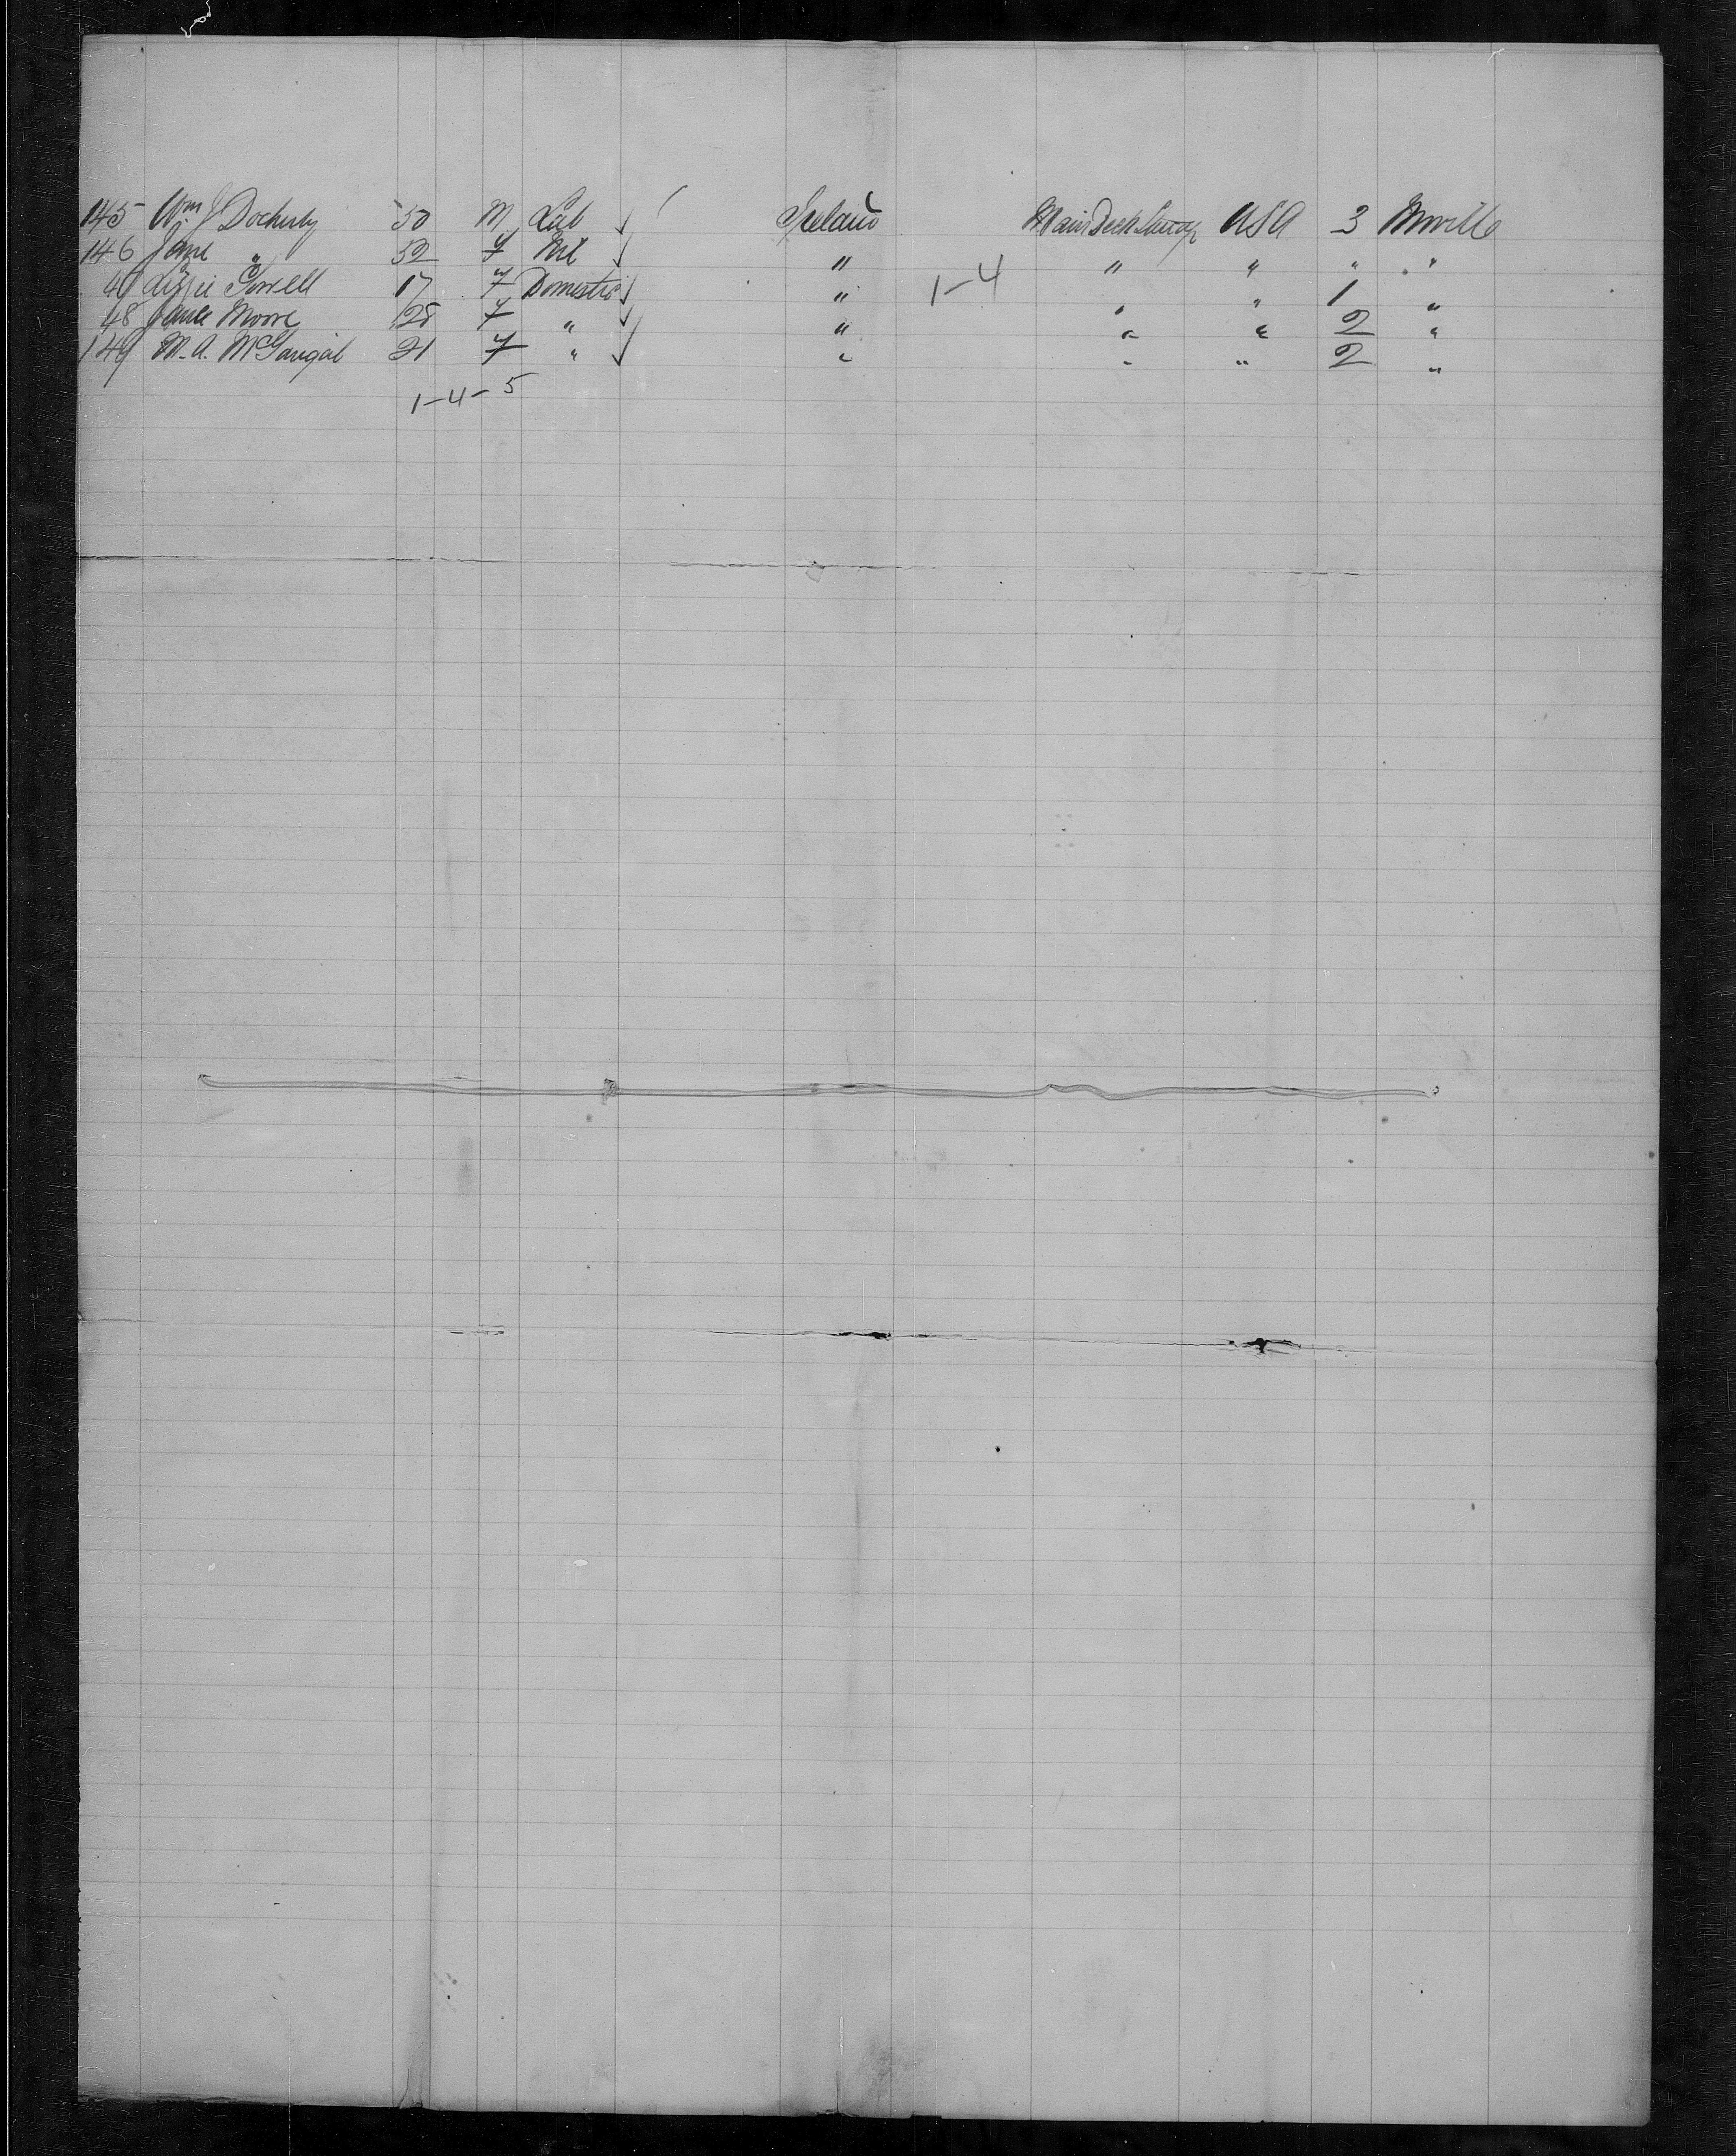 145 Wm J Docherty 50 M Lab ✓ Ireland Main Deck Steerage USA 3 Moville
146 Jane " 52 f " " " " "
Lizzie 17 f Domestic ✓ " 1-4 " " 1 "
48 Moore 28 f " ✓ " " " 2 "
149 M. A. McGonigal 21 f " ✓ " " " 2 "
1-4-5